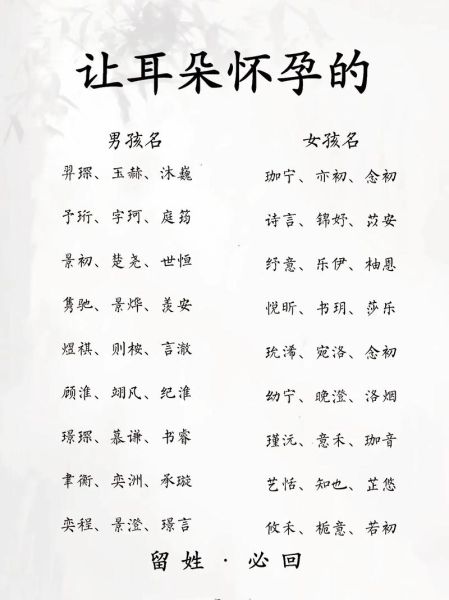 让耳朵怀孕的
男孩名
羿琛、玉赫、沐巍
予珩、字珂、庭筠
景初、楚尧、世恒
隽驰、景烨、羡安
煜祺、则桉、言澈
顾淮、翊凡、纪淮
璟琛、慕谦、书睿
聿衡、奕洲、承璇
奕程、景澄、璟言
女孩名
珈宁、亦初、念初
诗言、锦妤、苡安
纾意、乐伊、柚恩
悦昕、书玥、莎乐
玧浠、宛洛、念初
幼宁、晚澄、洛烟
瑾沅、意禾、珈音
艺恬、知也、芷悠
攸禾、栀意、若初
留姓·必回